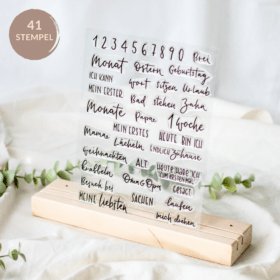 41
STEMPEL
1 2 3 4 5 6 7 8 9 0 Brei
Monat Ostern Geburtstag
ICH KANN wort sitzen Urlaub
MEIN ERSTER Bad stehen Zahn
Monate Papa 1 woche
MEIN ERSTES HEUTE BIN ICH
Mama Lächeln ENDLICH Zuhause
weihnachten ALT
Brabbeln Oma & Opa GESAGT
Besuch bei SACHEN laufen
MEINE liebsten mich drehen